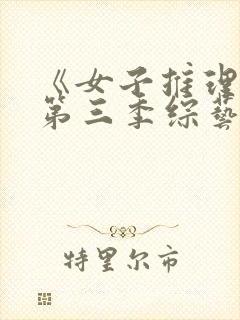 《女子推理
第三季综艺
特里尔市